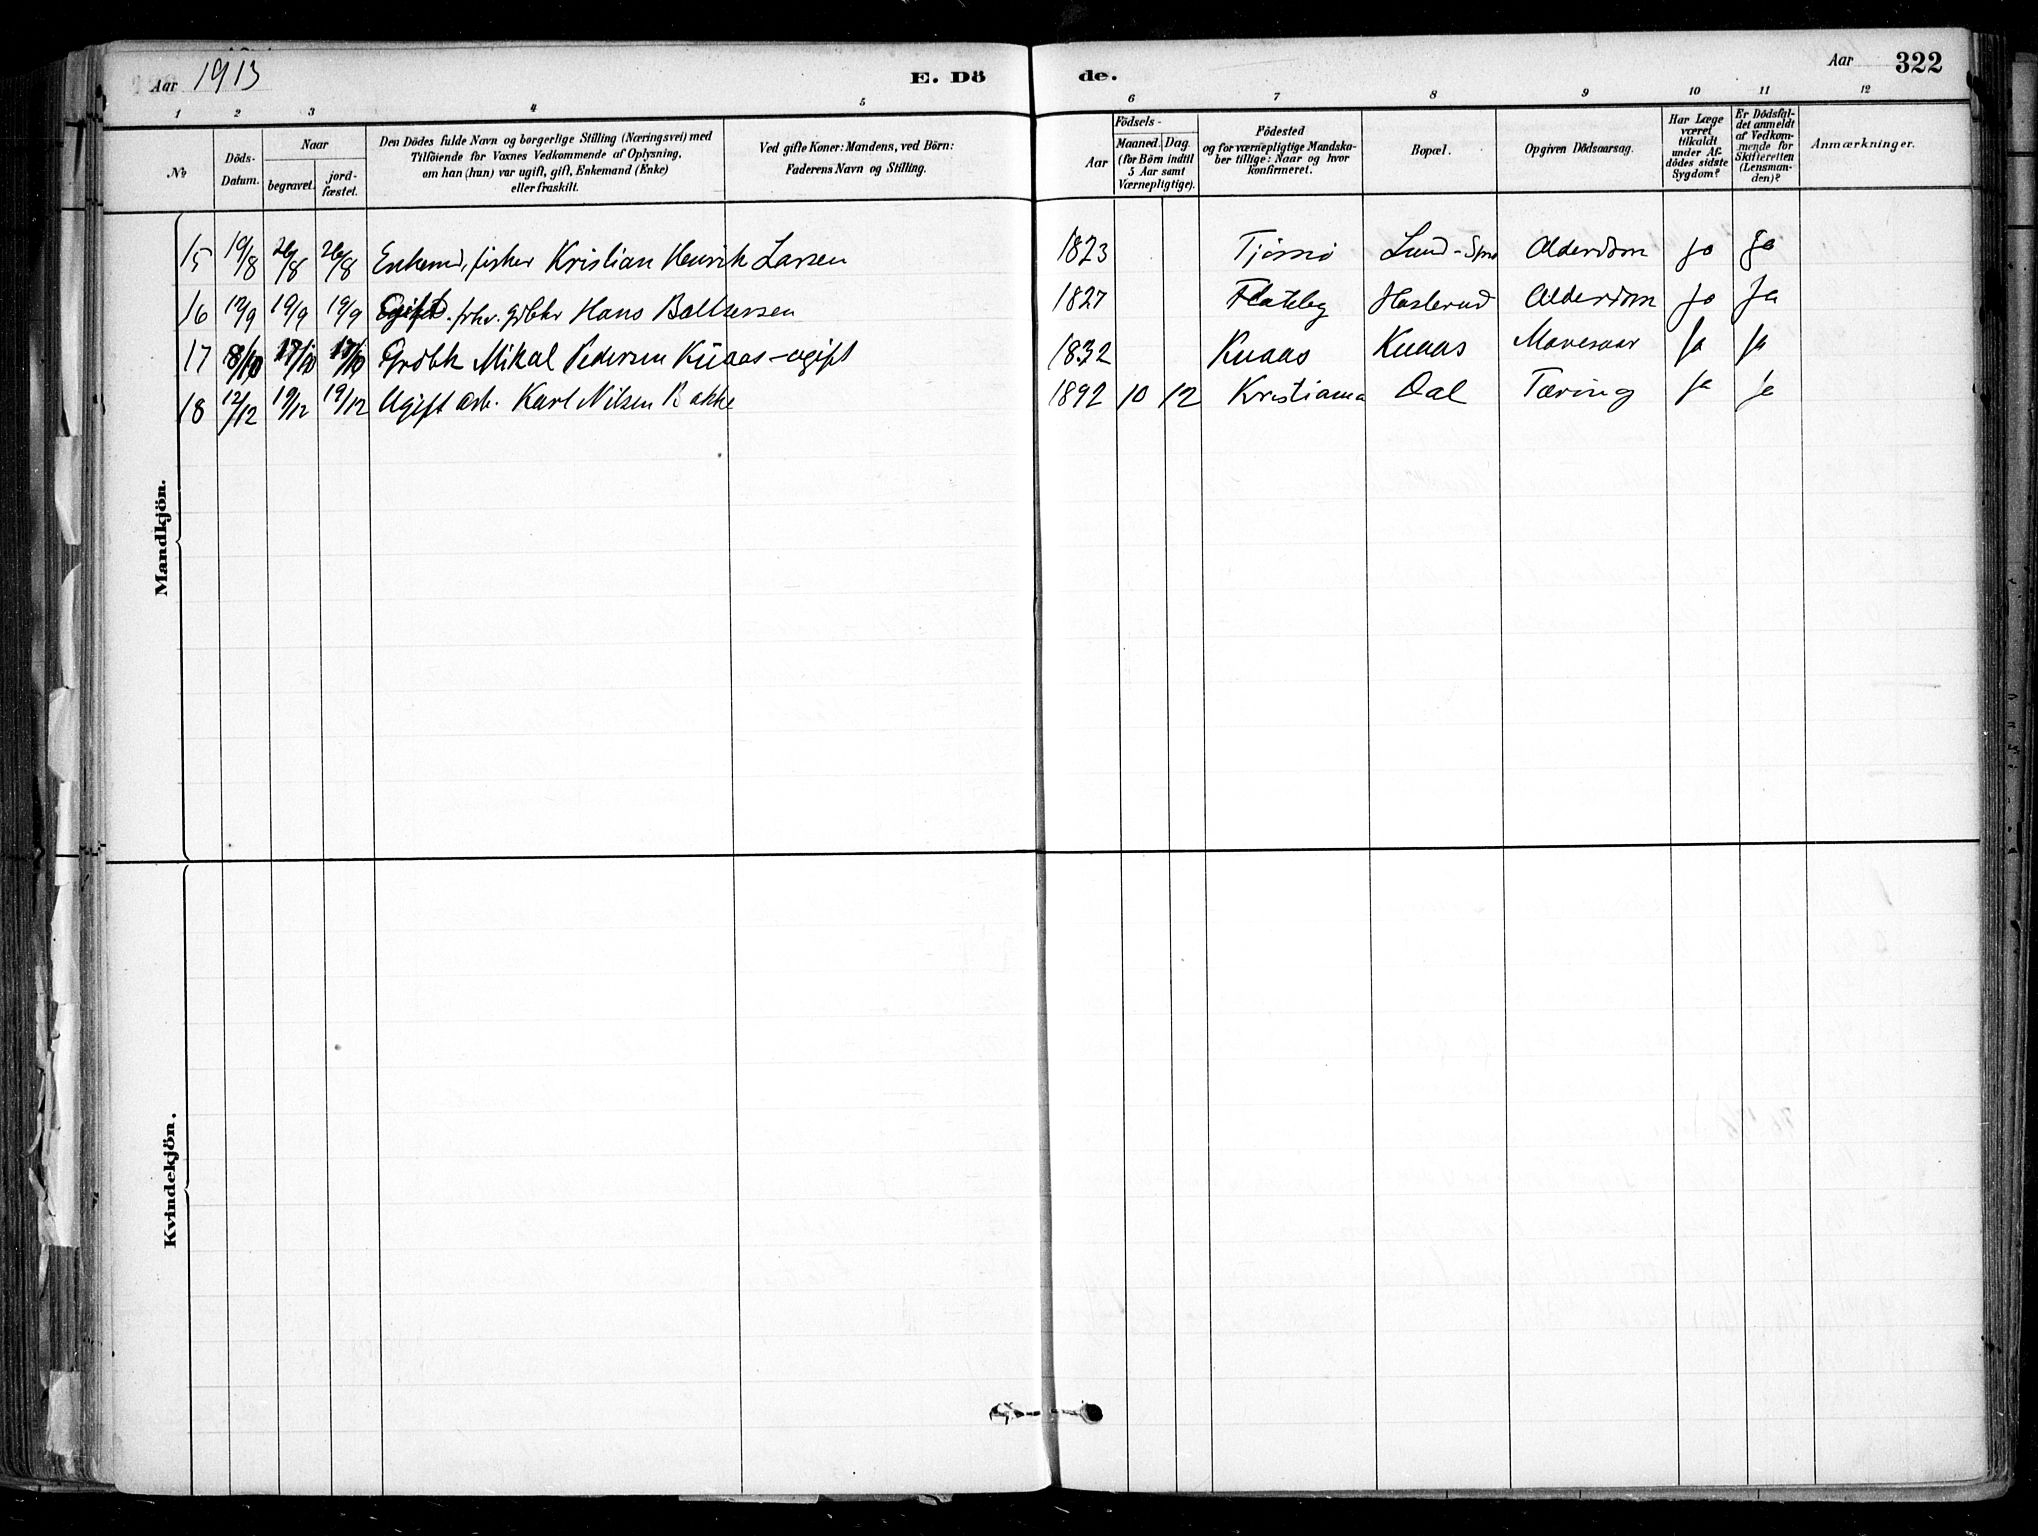 Aar 1913 E. Dö de. Aar 322
1 2 3 4 5 6 7 8 9 10 11 12
No
Döds-Datum.
Naar
begravet.
jordfæstet.
Den Dödes fulde Navn og borgerlige Stilling (Næringsvei) med
Tilföiende for Voxnes Vedkommende af Oplysning,
om han (hun) var ugift, gift, Enkemand (Enke)
eller fraskilt.
Ved gifte Koner: Mandens, ved Börn:
Faderens Navn og Stilling.
Födsels-
Aar
Maaned. Dag.
(for Börn indtil
5 Aar samt
Værnepligtige).
Födested
og for værnepligtige Mandskaber tillige: Naar og hvor
konfirmeret.
Bopæl.
Opgiven Dödsaarsag.
Har Læge
været
tilkaldt
under Afdödes sidste
Sygdom?
Er Dödsfaldet anmeldt
af Vedkommende for
Skifteretten
(Lensmanden)?
Anmærkninger.
Mandkjön.
15 19/8 26/8 26/8 Enkemd, fisker Kristian Henrik Larsen 1823 Tjømø Lund - Alderdom Ja Ja
16 12/9 19/9 19/9 Gift. frhv. grbkr Hans Baltsersen 1827 Flateby Haslerud Alderdom Ja Ja
17 8/10 17/10 17/10 Grdbk Mikal Pedersen Knaas - ugift 1832 Knaas Knaas Mavesaar Ja Ja
18 12/12 19/12 19/12 Ugift arb. Karl Nilsen Bakke 1892 10 12 Kristiania Dal Tæring Ja Ja
Kvindekjön.